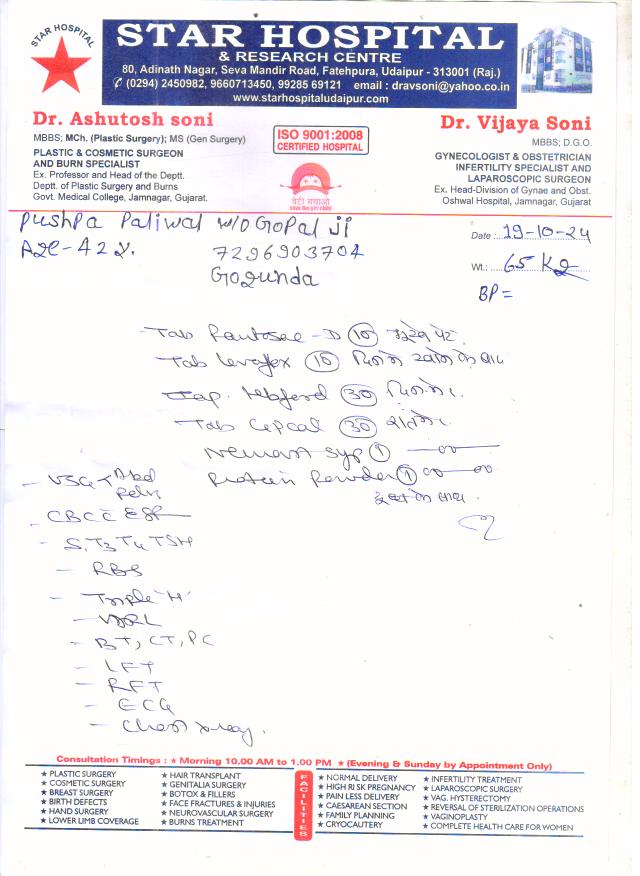 STAR HOSPITAL
STAR HOSPITAL
& RESEARCH CENTRE
80, Adinath Nagar, Seva Mandir Road, Fatehpura, Udaipur - 313001 (Raj.)
(0294) 2450982, 9660713450, 99285 69121 email : dravsoni@yahoo.co.in
www.starhospitaludaipur.com
Dr. Ashutosh soni
MBBS; MCh. (Plastic Surgery); MS (Gen Surgery)
PLASTIC & COSMETIC SURGEON
AND BURN SPECIALIST
Ex. Professor and Head of the Deptt.
Deptt. of Plastic Surgery and Burns
Govt. Medical College, Jamnagar, Gujarat.
ISO 9001:2008
CERTIFIED HOSPITAL
बेटी बचाओ
Dr. Vijaya Soni
MBBS; D.G.O.
GYNECOLOGIST & OBSTETRICIAN
INFERTILITY SPECIALIST AND
LAPAROSCOPIC SURGEON
Ex. Head-Division of Gynae and Obst.
Oshwal Hospital, Jamnagar, Gujarat
Pushpa Paliwal w/o Gopal Ji
Age-42 y.
7296903704
Gogunda
Date : 19-10-24
Wt.: 65 Kg
BP =
Tab -D 10
Tab 10
30
Tab 30
Syp 1
Protein Powder 1
- USG Abd
Pelvis
- CBC ESR
- S. T3 T4 TSH
- RBS
- Triple 'H'
- VDRL
- BT, CT, PC
- LFT
- RFT
- ECG
- Chest xray.
Consultation Timings : ★ Morning 10.00 AM to 1.00 PM ★ (Evening & Sunday by Appointment Only)
★ PLASTIC SURGERY
★ COSMETIC SURGERY
★ BREAST SURGERY
★ BIRTH DEFECTS
★ HAND SURGERY
★ LOWER LIMB COVERAGE
★ HAIR TRANSPLANT
★ GENITALIA SURGERY
★ BOTOX & FILLERS
★ FACE FRACTURES & INJURIES
★ NEUROVASCULAR SURGERY
★ BURNS TREATMENT
FACILITIES
★ NORMAL DELIVERY
★ HIGH RI SK PREGNANCY
★ PAIN LESS DELIVERY
★ CAESAREAN SECTION
★ FAMILY PLANNING
★ CRYOCAUTERY
★ INFERTILITY TREATMENT
★ LAPAROSCOPIC SURGERY
★ VAG. HYSTERECTOMY
★ REVERSAL OF STERILIZATION OPERATIONS
★ VAGINOPLASTY
★ COMPLETE HEALTH CARE FOR WOMEN